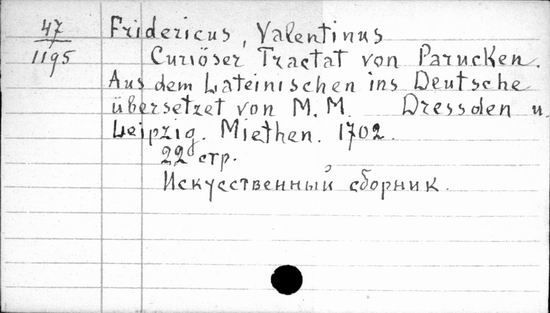 47
1195
Fridericus, Valentinus
Curiöser Tractat von Parucken.
Aus dem Lateinischen ins Deutsche
übersetzet von M. M. Dressden u.
Leipzig. Miethen. 1702.
22 стр.
Искусственный сборник.